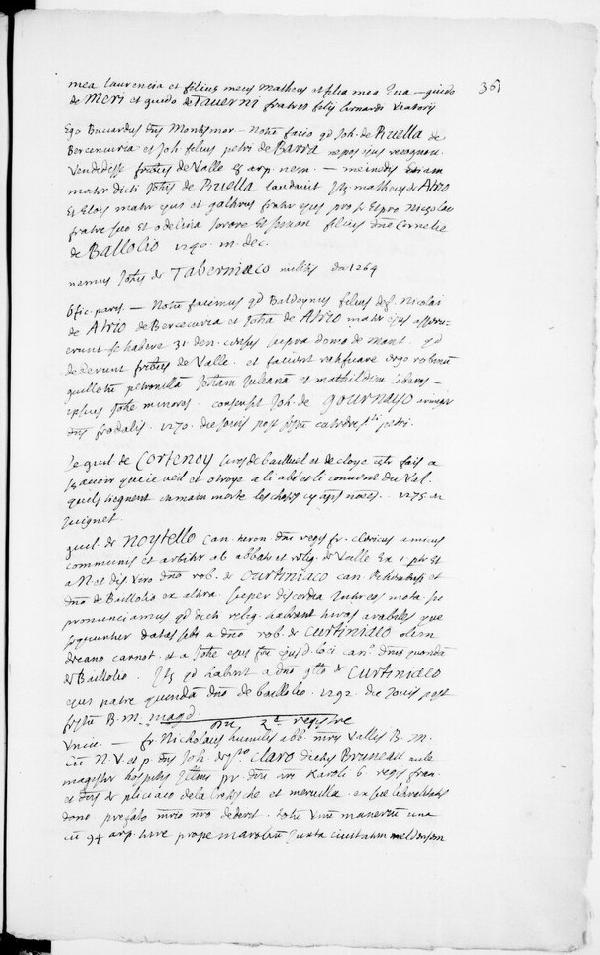 36
mea laurencia et filius meus Matheus et filia mea Eva — guido
de Meri et guido de Taverni fratres felis bernardi viatoris
Ego Bucardus dns Montmor. — Notu facio qd Joh. de Ruella de
Bercencuria et Joh filius petri de Barra nepos ejus recognov.
vendidisse fribus de Valle arp. nem. — etiam
mater dicti Johis de Ruella laudavit Itz matheus de Atrio
et mater ejus et galterus frater ejus pro se et pro Nicolao
fratre suo et odelina sorore et filius dne Cornelie
de Ballolio 1240. m. dec.
nemus Johis de Taberniaco militis dat 1264
Ofic. paris. — Notu facimus qd Baldoynus filius def. Nicolai
de Atrio de Bercecuria et Joha de Atrio mater ejus asseru-
erunt se habere 31 den. census supra domo de mant. qd
dederunt fribus de Valle. et facient ratificare
petronilla Joham Juliana et mathildim liberos —
ipsius Johe minores. consensit Joh. de gournayo armiger
dns feodalis. 1270. die Jovis post festu cathedre sti petri.
Je guil. de Cortency sires de bailluel et de cloye fais a
savoir que je veil et otroye a li abé et le convent du Val.
quels tiegnent en main morte les choses cy aps nomes. 1275 en
guil. de Noytello can. dni regis fr. clericus amicus
communis et arbiter ab abbate et relig. de Valle ex 1 pte et
a N. et dis. viro dno rob. de Curtiniaco can. et
dno de Baillolio ex altera. super discordia inter eos mota
pronunciamus qd dicti relig. habeant terras arabiles que
sequuntur datas sibi a dno rob. de Curtiniaco olim
decano carnot. et a Johe ejus fre ejusd. loci can. dnis quondam
de Baillolio. Itz qd habent a dno de Curtiniaco
ejus patre quondam dno de baillolio. 1292. die Jovis post
festu B. M. magd
du 2e registre
Univ. — fr. Nicholaus humilis abb. mrii Vallis B. M.
cu N. V. et p. dns Joh. de sto Claro dictus Bruneau aule
magister hospitii Illmi pr. dni nri Karoli 6 regis fran.
et dns de pliciaco de la et merulla. ex sue liberalitatis
dono prefato mrio nro dederit totu unu maneriu una
cu 94 arp. terre prope maroliu Juxta civitatem meldensem